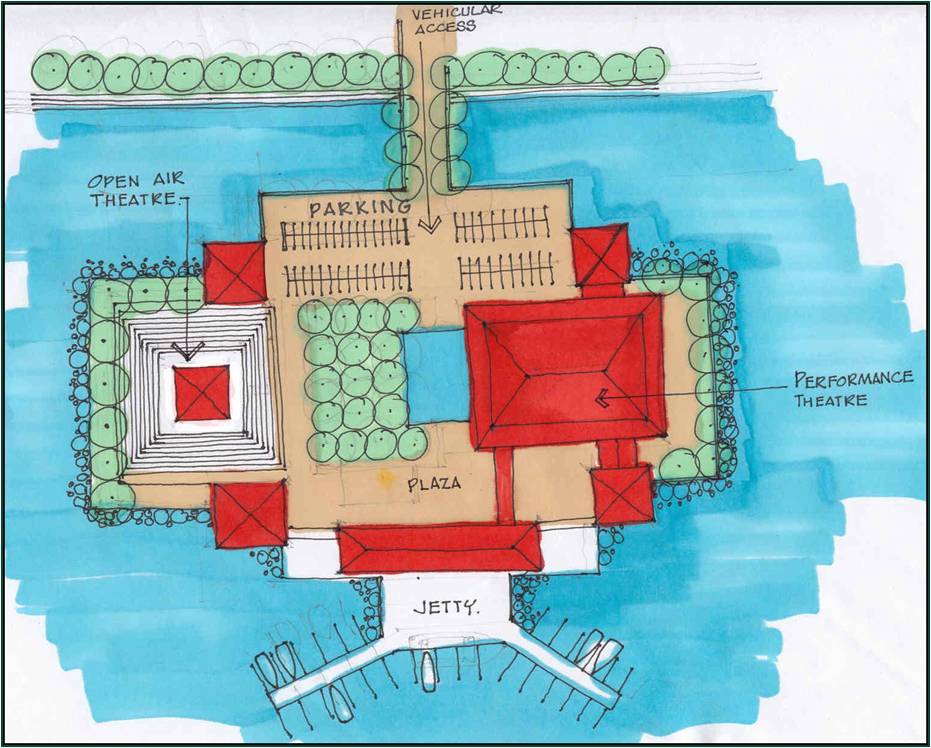 VEHICULAR
ACCESS
OPEN AIR
THEATRE
PARKING
PERFORMANCE
THEATRE
PLAZA
JETTY.